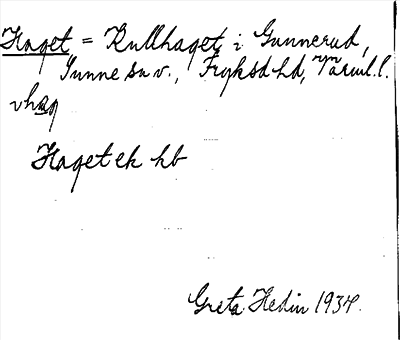 Haget = Kullhaget i Gunnerud,
Sunne sn v., Fryksd hd, Värml. l.
Haget ek hb
Greta Hedin 1934.